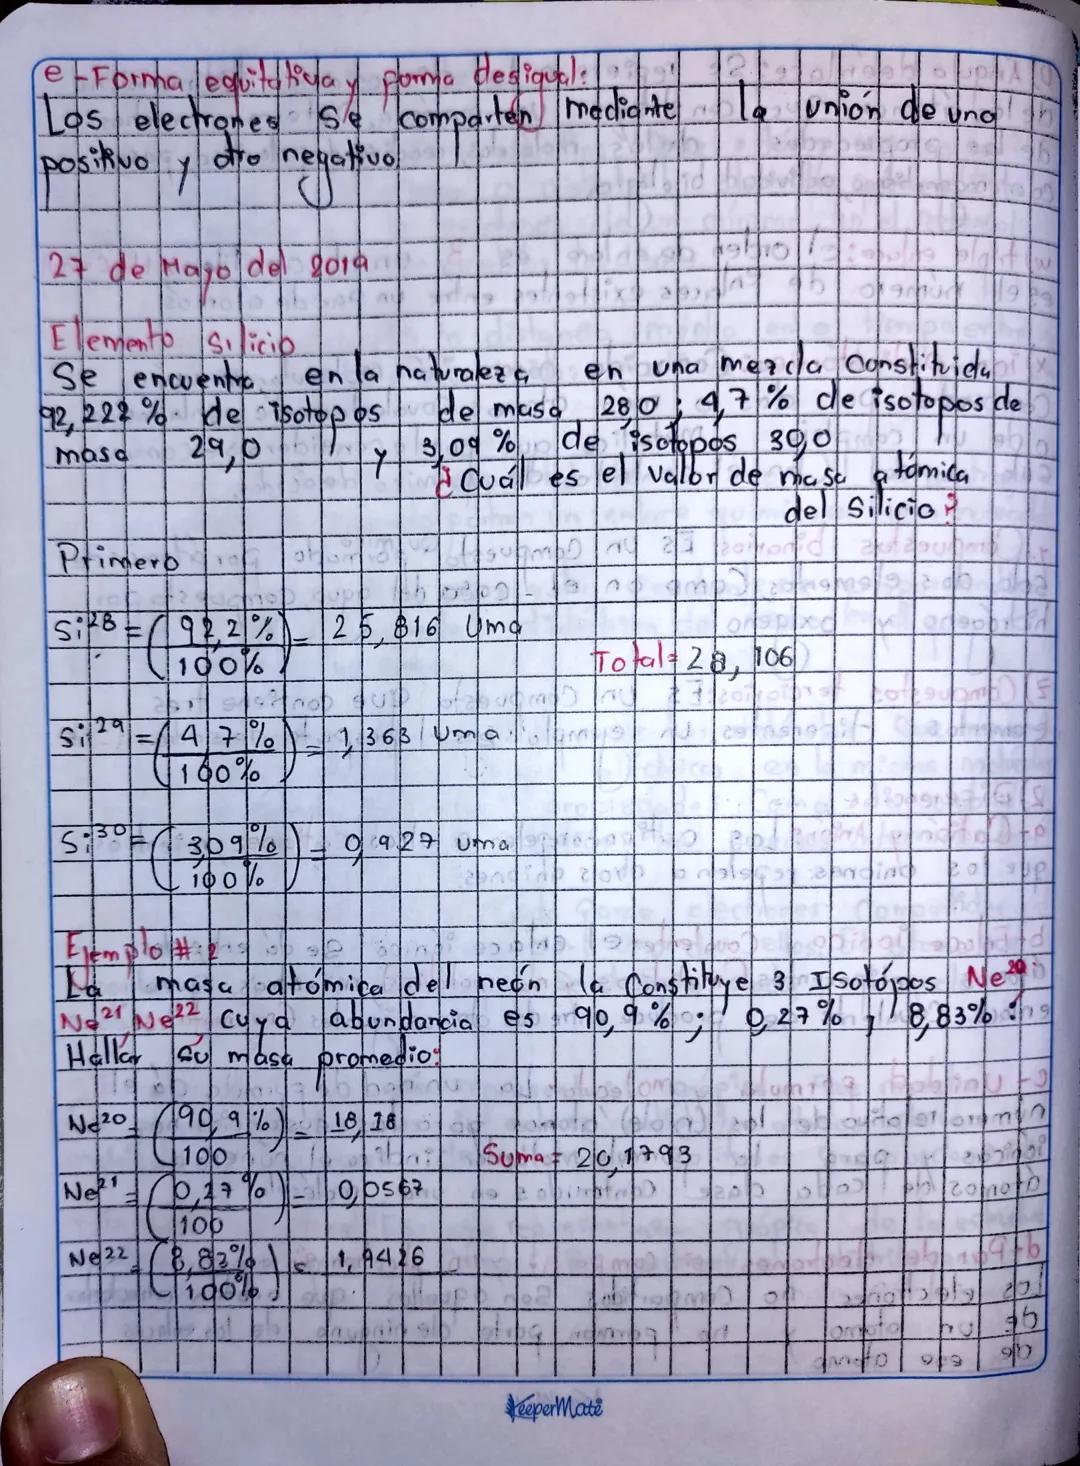 e-Forma equitativa y forma desigual:
Los electrones se comparten mediante la unión de uno
positivo y otro negativo
27 de Mayo del 2019
Elemento Silicio
Se encuentra en la naturaleza en una mezcla Constituida
92,222% de isotopos de masa 28,0 ; 4,7% de isotopos de
masa 29,0 y 3,09% de isotopos 30,0
¿Cuál es el valor de masa atómica
del Silicio?
Primero
Si28=(92,2%/100%)= 25,816 Uma
Total= 28,106
Si29=(4 7%/100%)= 1,363 Uma
Si30=(3,09%/100%)= 0,927 uma
Ejemplo # 2
La masa atómica del neón la Constituye 3 Isotópos Ne20;
Ne21, Ne22 cuya abundancia es 90,9%; 0,27%, 8,83% :
Hallar su masa promedio:
Ne20=(90,9%/100)= 18,18
Suma= 20,1793
Ne21=(0,27%/100)= 0,0567
Ne22=(8,83%/100%)= 1,9426
KeeperMate